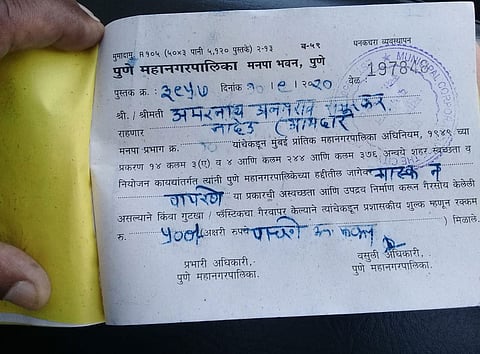 मुमादामु R १०५ (५०×३ पानी ५,१२० पुस्तके) २-१३ ब-५९ घनकचरा व्यवस्थापन
पुणे महानगरपालिका मनपा भवन, पुणे
पुस्तक क्र. : ३९५७ दिनांक १०/९/२०२० वेळ 1978
श्री. / श्रीमती अमरनाथ
राहणार नांदेड (आमदार)
मनपा प्रभाग क्र. यांचेकडून मुंबई प्रांतिक महानगरपालिका अधिनियम, १९४९ च्या
प्रकरण १४ कलम ३(ए) व ४ आणि कलम २४४ आणि कलम ३७६ अन्वये शहर स्वच्छता व
नियोजन कायद्यांतर्गत त्यांनी पुणे महानगरपालिकेच्या हद्दीतील जागेवर मास्क न
वापरणे या प्रकारची अस्वच्छता आणि उपद्रव निर्माण करून गैरसोय केलेली
असल्याने किंवा गुटखा / प्लॅस्टिकचा गैरवापर केल्याने त्यांचेकडून प्रशासकीय शुल्क म्हणून रक्कम
रु. ५००/- अक्षरी रुपये पाचशे मिळाले.
प्रभारी अधिकारी, वसुली अधिकारी,
पुणे महानगरपालिका. पुणे महानगरपालिका.